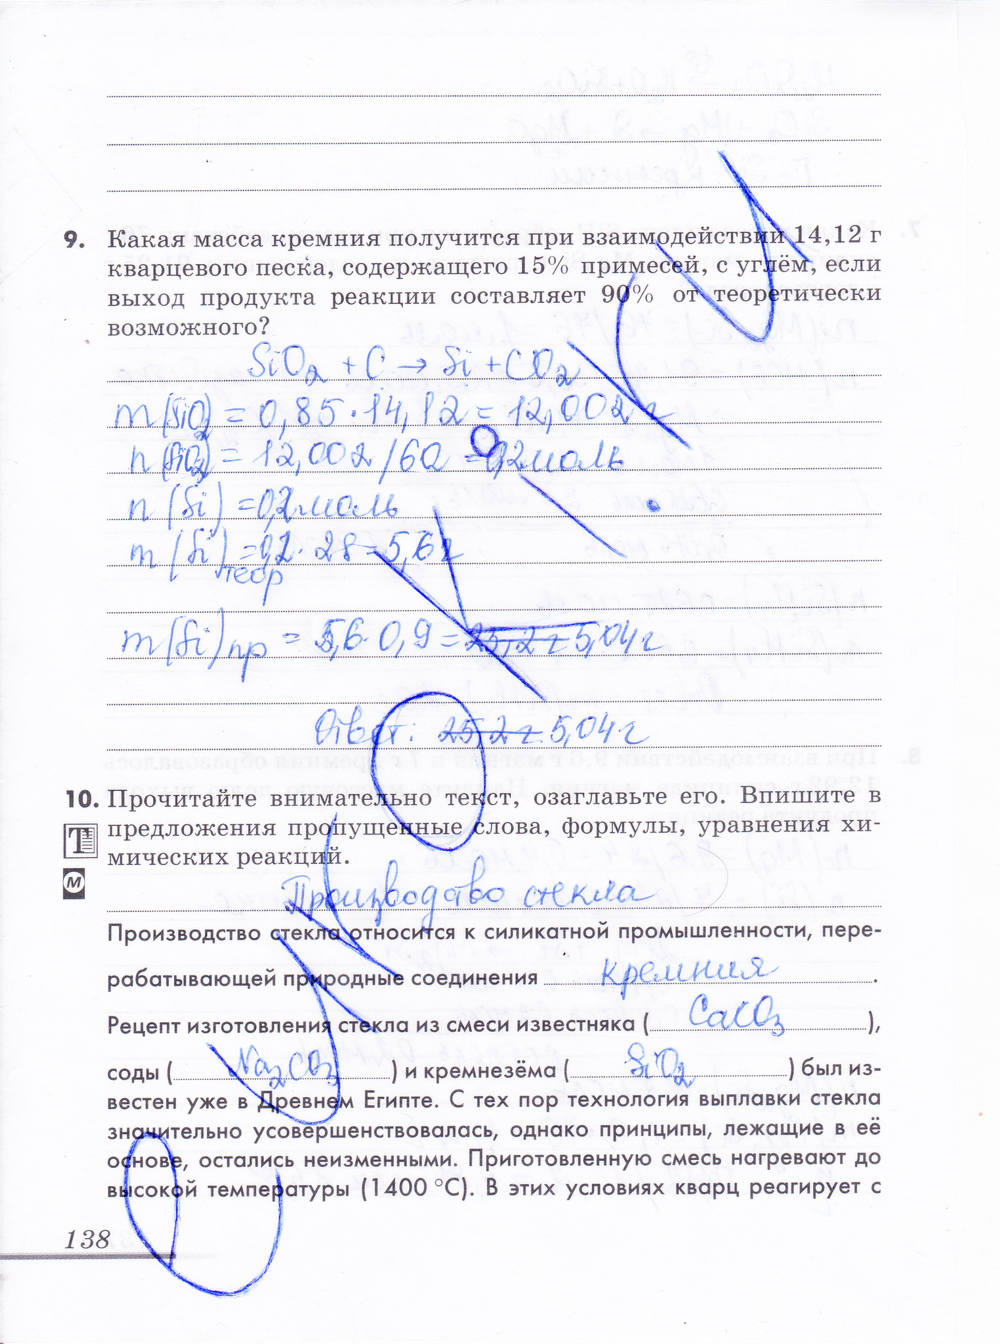 9. Какая масса кремния получится при взаимодействии 14,12 г
кварцевого песка, содержащего 15% примесей, с углём, если
выход продукта реакции составляет 90% от теоретически
возможного?
SiO₂ + C → Si + CO₂
m(SiO₂) = 0,85·14,12 = 12,002 г
n(SiO₂) = 12,002/60 = 0,2 моль
n(Si) = 0,2 моль
m(Si)теор = 0,2·28 = 5,6 г
m(Si)пр = 5,6·0,9 = 25,2 г 5,04 г
Ответ: 25,2 г 5,04 г
10. Прочитайте внимательно текст, озаглавьте его. Впишите в
Т предложения пропущенные слова, формулы, уравнения хи-
М мических реакций.
Производство стекла
Производство стекла относится к силикатной промышленности, пере-
рабатывающей природные соединения кремния.
Рецепт изготовления стекла из смеси известняка (CaCO₃),
соды (Na₂CO₃) и кремнезёма (SiO₂) был из-
вестен уже в Древнем Египте. С тех пор технология выплавки стекла
значительно усовершенствовалась, однако принципы, лежащие в её
основе, остались неизменными. Приготовленную смесь нагревают до
высокой температуры (1400 °C). В этих условиях кварц реагирует с
138